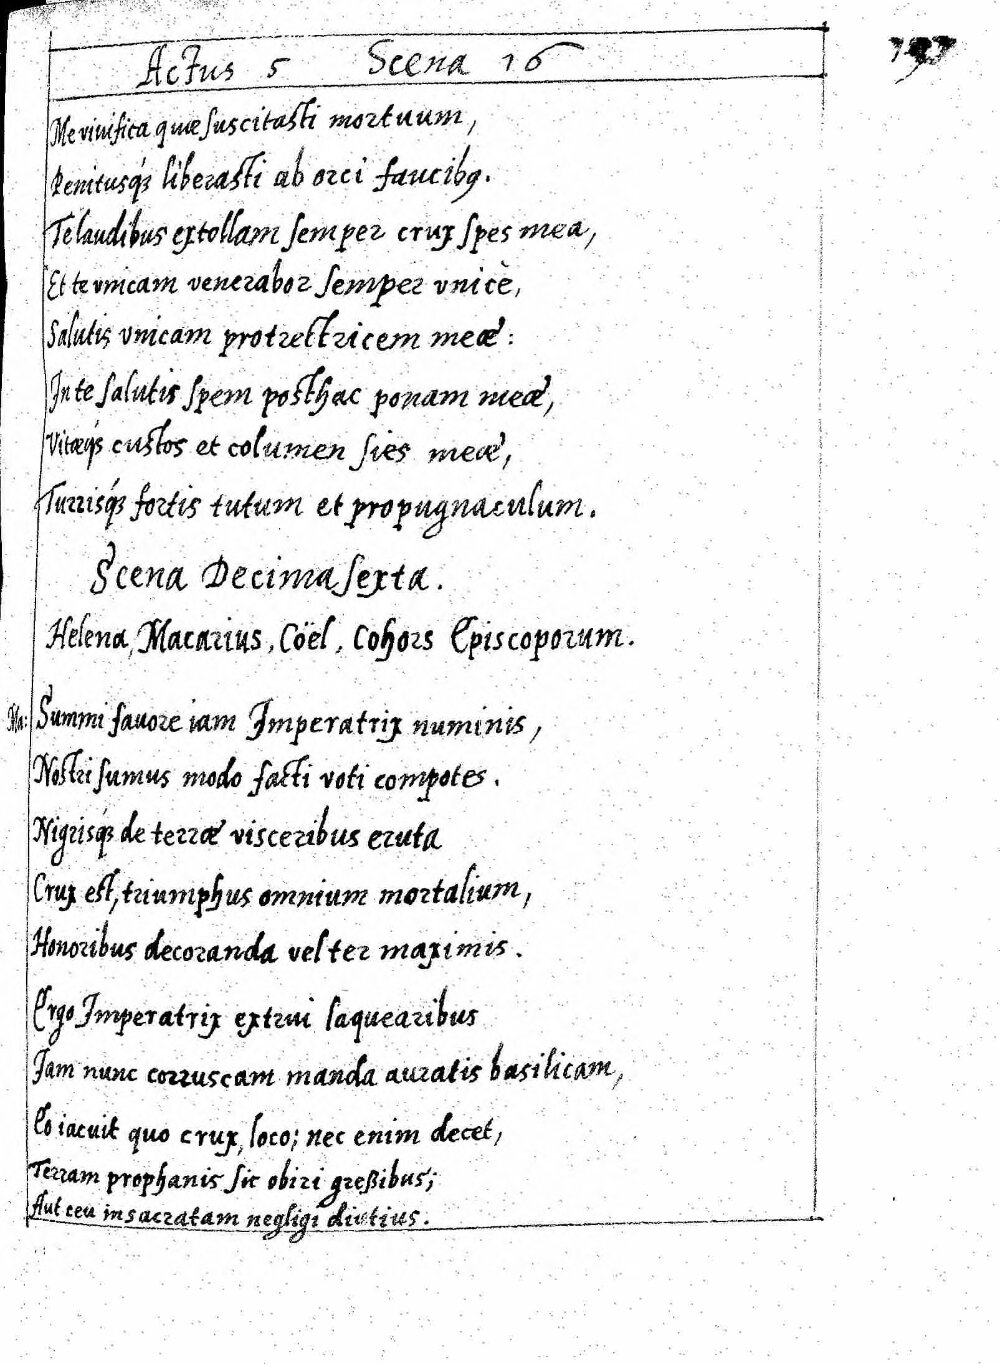 Actus 5 Scena 16
Me vivifica quæ suscitasti mortuum,
Penitusq́; liberasti ab orci faucibꝰ.
Te laudibus extollam semper crux spes mea,
Et te vnicam venerabor semper vnicè,
Salutis vnicam protrectricem meæ:
In te salutis spem posthac ponam meæ,
Vitæq́; custos et columen sies meæ,
Turrisq́; fortis tutum et propugnaculum.
Scena Decima sexta.
Helena, Macarius, Cöel, Cohors Episcoporum.
Ma: Summi favore iam Imperatrix numinis,
Nostri sumus modo facti voti compotes.
Nigrisq́; de terræ visceribus eruta
Crux est, triumphus omnium mortalium,
Honoribus decoranda vel ter maximis.
Ergo Imperatrix extrui laquearibus
Jam nunc corruscam manda auratis basilicam,
Eo iacuit quo crux, loco; nec enim decet,
Terram prophanis sic obiri greßibus;
Aut ceu insacratam negligi diutius.